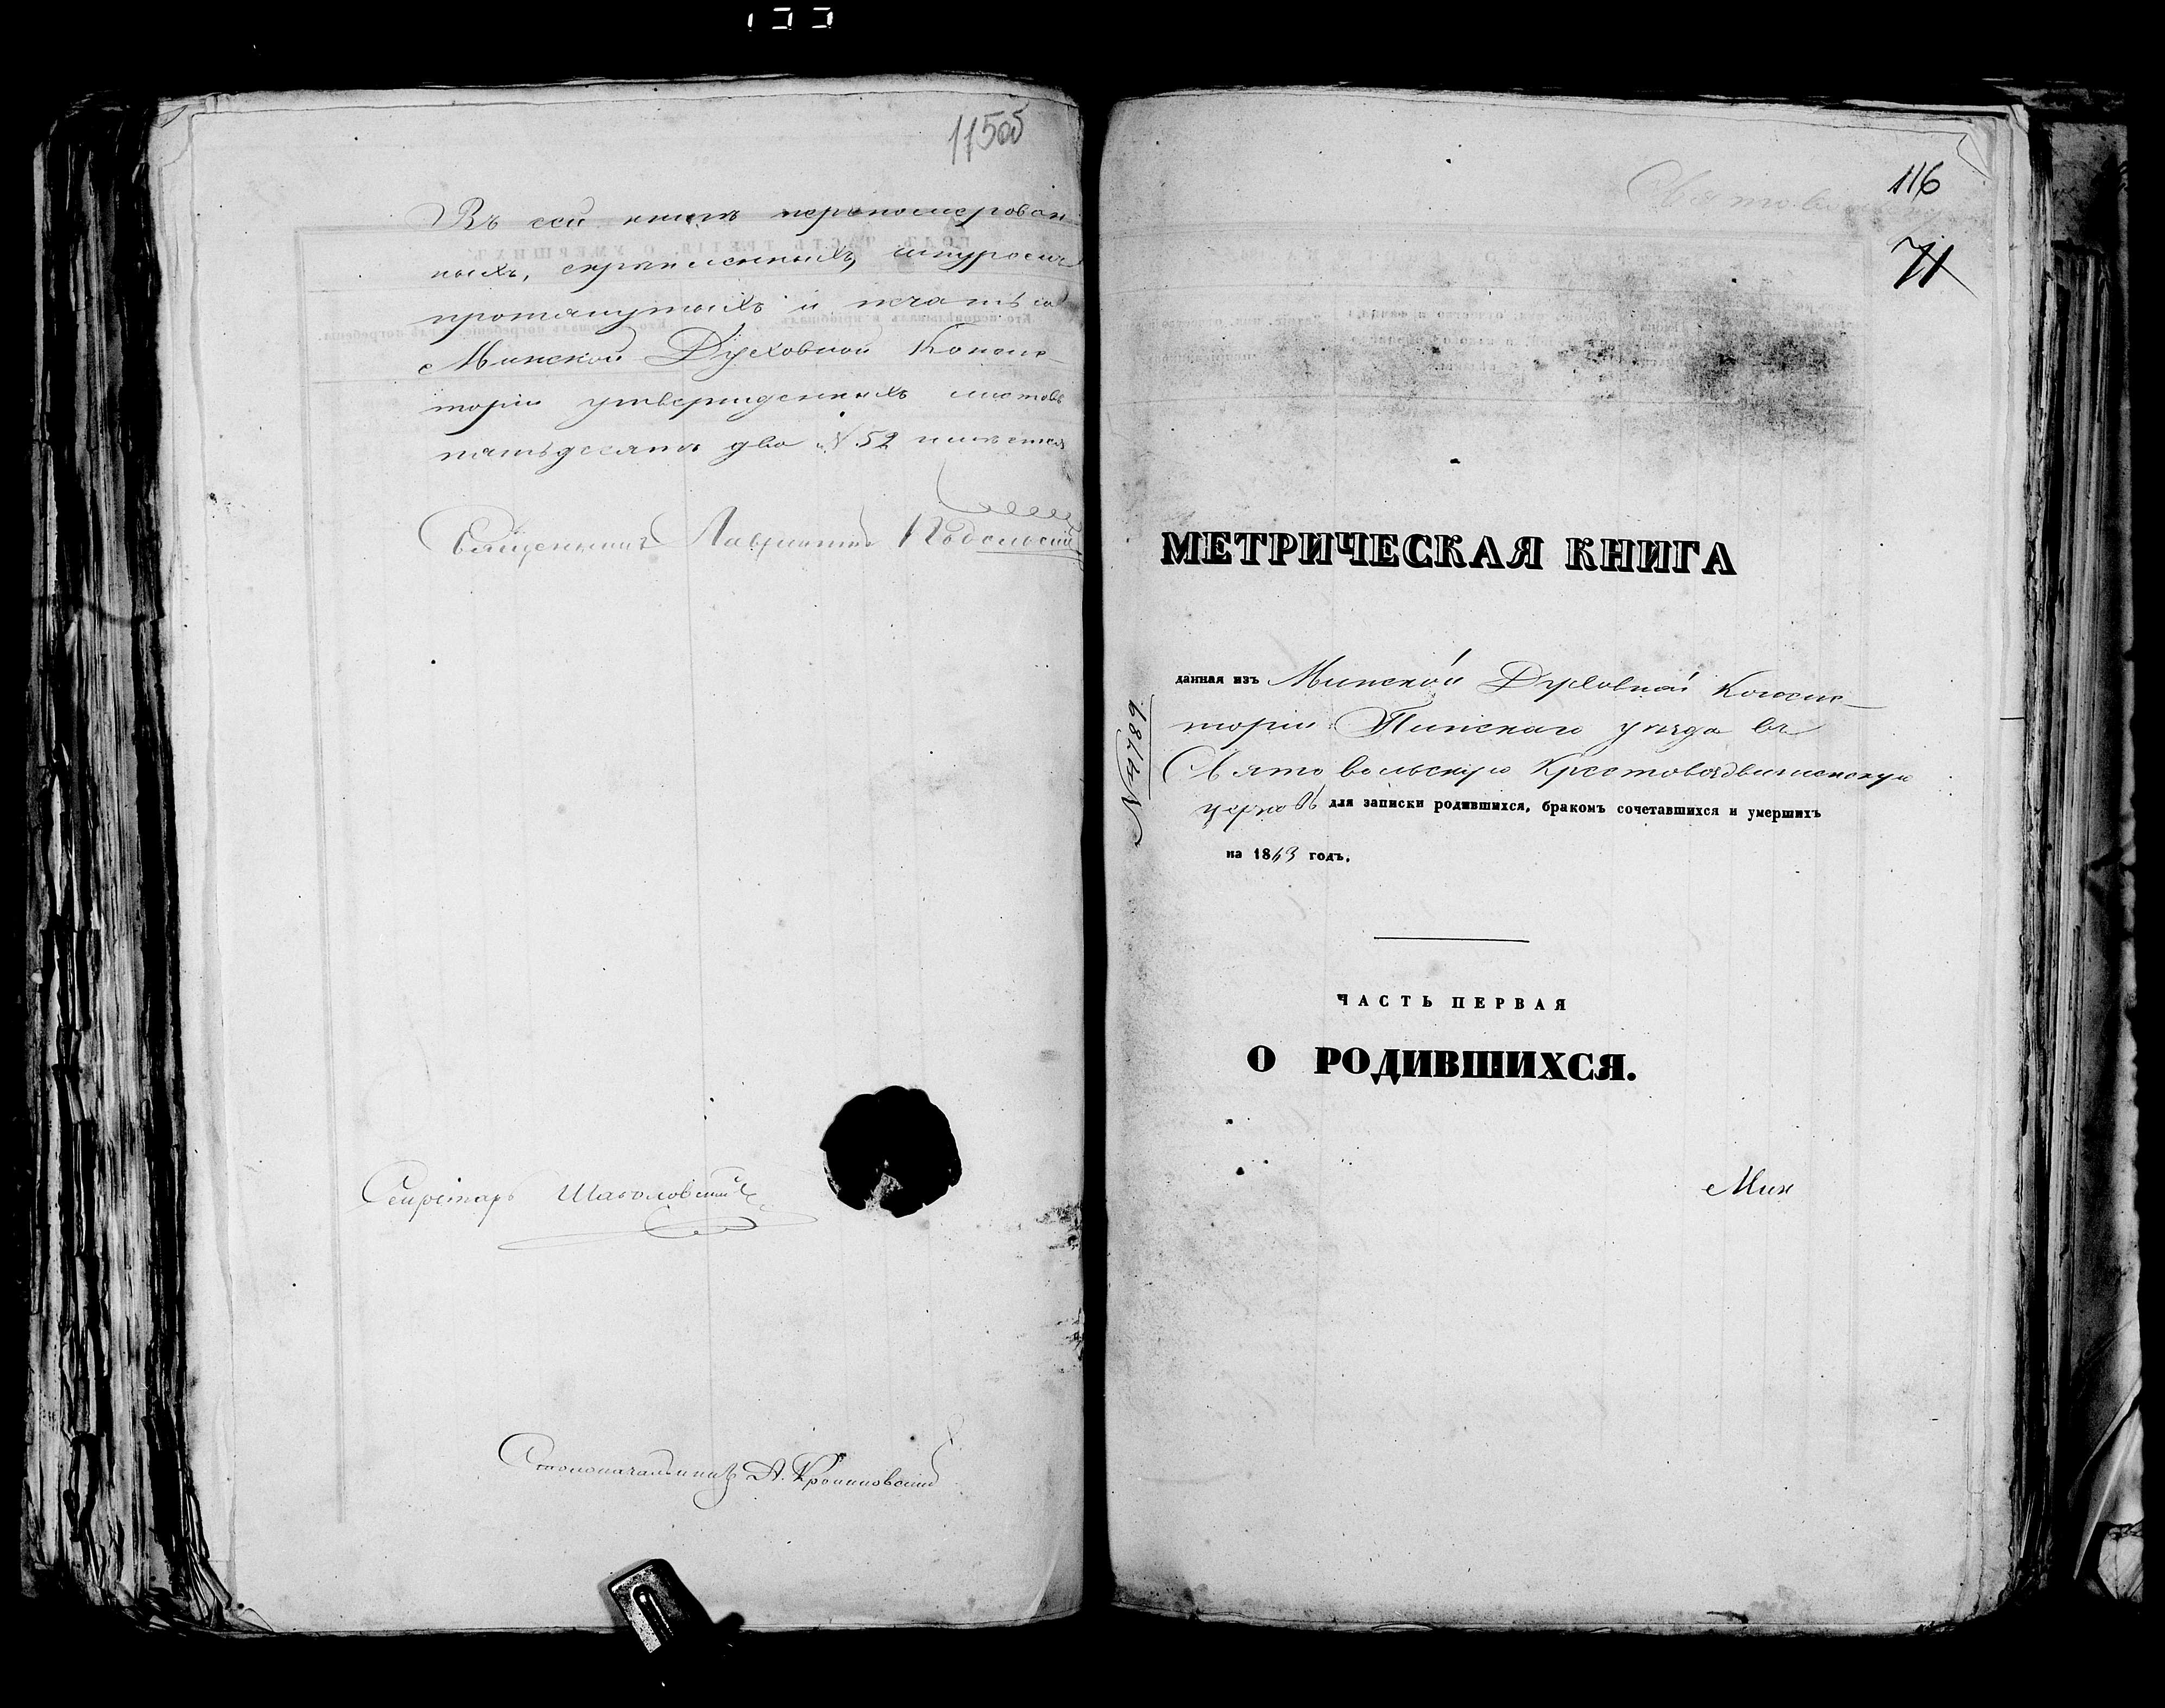 115об
Въ сей книгѣ перенумерован-
ныхъ, скрѣпленныхъ, шнуромъ
протянутыхъ и печатью
Минской Духовной Консис-
торіи утвержденныхъ листовъ
пятьдесятъ два № 52 имѣется
Священникъ Лаврентій Подольскій
Секретарь
Столоначальникъ А.
116
71
Святовольскую
МЕТРИЧЕСКАЯ КНИГА
№ 4789
данная изъ Минской Духовной Консис-
торіи Пинскаго уѣзда въ
Святовольскую Крестовоздвиженскую
церковь для записки родившихся, бракомъ сочетавшихся и умершихъ
на 1843 годъ.
ЧАСТЬ ПЕРВАЯ
О РОДИВШИХСЯ.
Мин